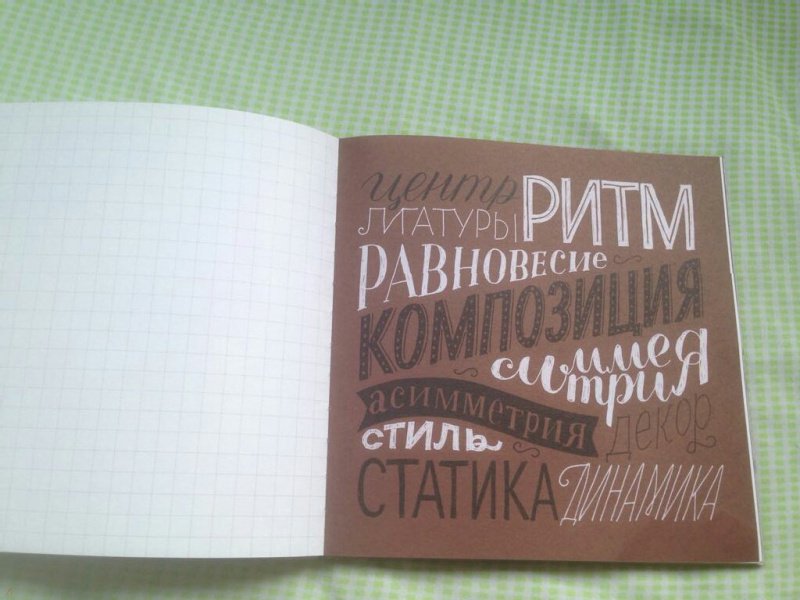 центр
ЛИГАТУРЫ РИТМ
РАВНОВЕСИЕ
КОМПОЗИЦИЯ
симметрия
асимметрия
декор
СТИЛЬ
СТАТИКА ДИНАМИКА